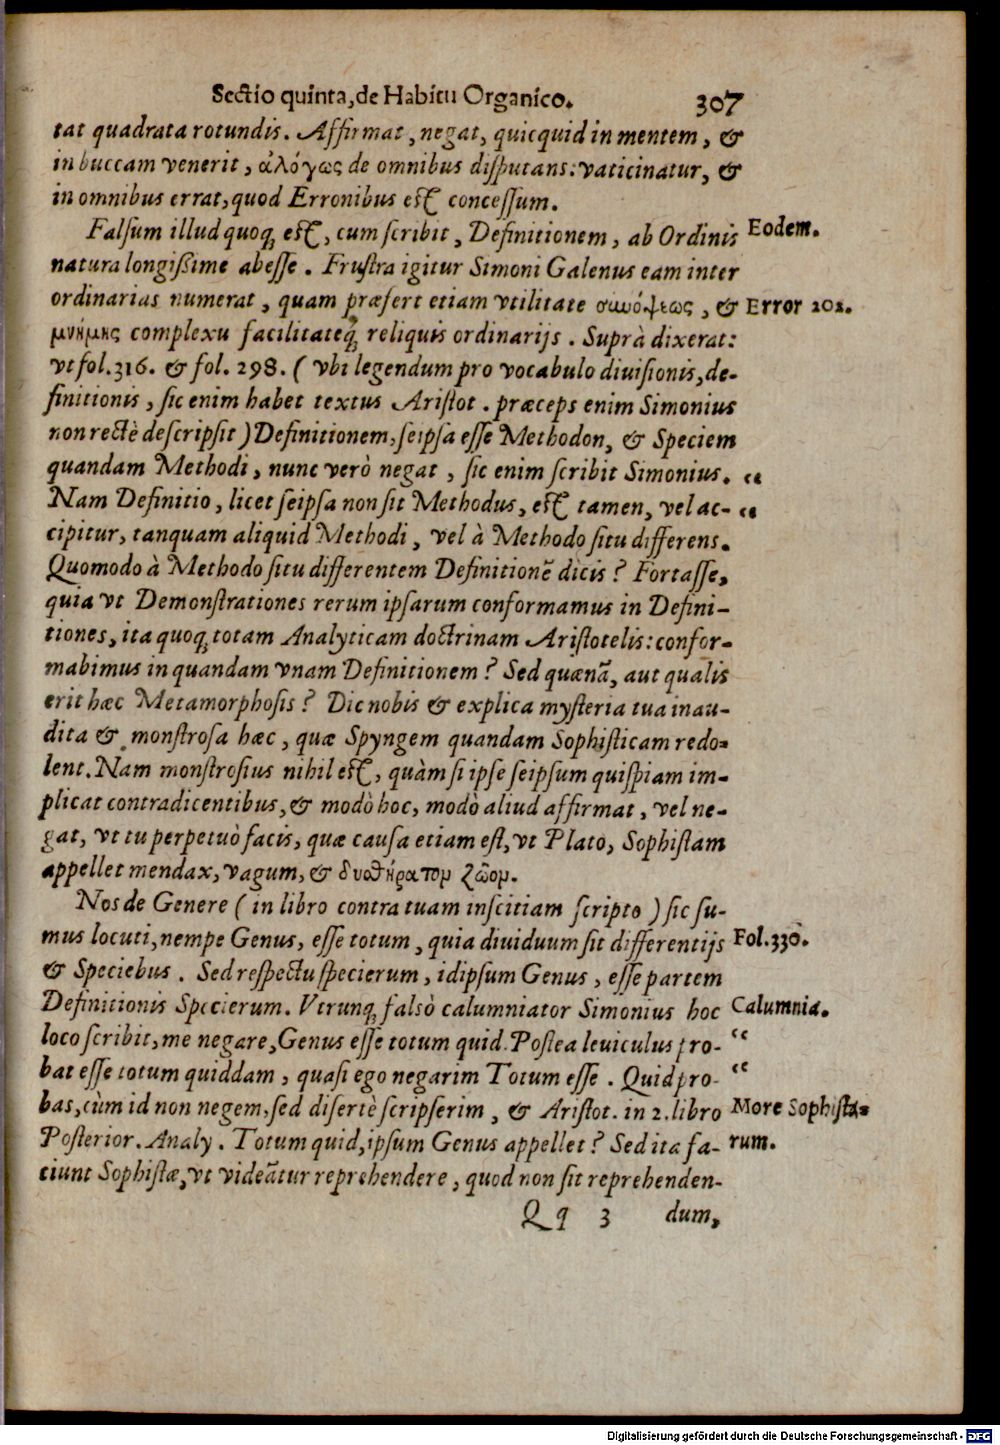 Sectio quinta, de Habitu Organico. 307
tat quadrata rotundis. Affirmat, negat, quicquid in mentem, &
in buccam venerit, ἀλόγως de omnibus disputans: vaticinatur, &
in omnibus errat, quod Erronibus est concessum.
Falsum illud quoq; est, cum scribit, Definitionem, ab Ordinis Eodem.
natura longißime abesse. Frustra igitur Simoni Galenus eam inter
ordinarias numerat, quam præfert etiam vtilitate συνόψεως, & Error 202.
μνήμης complexu facilitateq́; reliquis ordinarijs. Suprà dixerat:
vt fol. 316. & fol. 298. (vbi legendum pro vocabulo diuisionis, de-
finitionis, sic enim habet textus Aristot. præceps enim Simonius
non rectè descripsit) Definitionem, seipsa esse Methodon, & Speciem
quandam Methodi, nunc verò negat, sic enim scribit Simonius. „
Nam Definitio, licet seipsa non sit Methodus, est tamen, vel ac- „
cipitur, tanquam aliquid Methodi, vel à Methodo situ differens.
Quomodo à Methodo situ differentem Definitionē dicis? Fortasse,
quia vt Demonstrationes rerum ipsarum conformamus in Defini-
tiones, ita quoq; totam Analyticam doctrinam Aristotelis: confor-
mabimus in quandam vnam Definitionem? Sed quænā, aut qualis
erit hæc Metamorphosis? Dic nobis & explica mysteria tua inau-
dita & monstrosa hæc, quæ Spyngem quandam Sophisticam redo-
lent. Nam monstrosius nihil est, quàm si ipse seipsum quispiam im-
plicat contradicentibus, & modò hoc, modò aliud affirmat, vel ne-
gat, vt tu perpetuò facis, quæ causa etiam est, vt Plato, Sophistam
appellet mendax, vagum, & δυσθήρατομ ζῶομ.
Nos de Genere (in libro contra tuam inscitiam scripto) sic su-
mus locuti, nempe Genus, esse totum, quia diuiduum sit differentijs Fol. 330.
& Speciebus. Sed respectu specierum, id ipsum Genus, esse partem
Definitionis Specierum. Vtrunq; falsò calumniator Simonius hoc Calumnia.
loco scribit, me negare, Genus esse totum quid. Postea leuiculus pro- “
bat esse totum quiddam, quasi ego negarim Totum esse. Quid pro- “
bas, cùm id non negem, sed disertè scripserim, & Aristot. in 2. libro More Sophista-
Posterior. Analy. Totum quid, ipsum Genus appellet? Sed ita fa- rum.
ciunt Sophistæ, vt videātur reprehendere, quod non sit reprehenden-
Qq 3 dum,
Digitalisierung gefördert durch die Deutsche Forschungsgemeinschaft - DFG